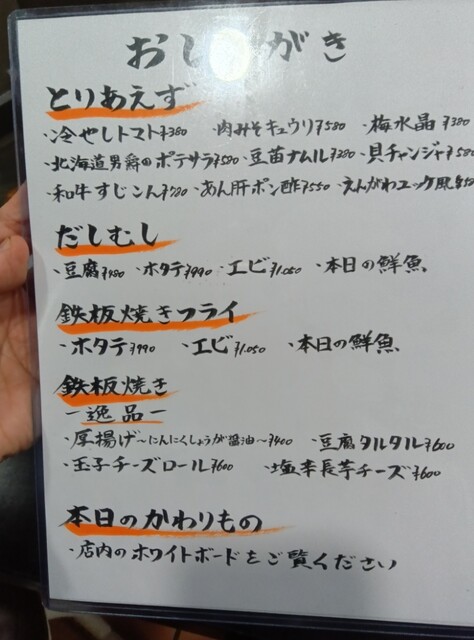 おし がき
とりあえず
・冷やしトマト¥380 ・肉みそキュウリ¥580 ・梅水晶¥380
・北海道男爵のポテサラ¥580 ・豆苗ナムル¥380 ・貝チャンジャ¥580
・和牛すじこん¥780 ・あん肝ポン酢¥550 ・えんがわユッケ風
だしむし
・豆腐¥980 ・ホタテ¥990 ・エビ¥1.050 ・本日の鮮魚
鉄板焼きフライ
・ホタテ¥990 ・エビ¥1.050 ・本日の鮮魚
鉄板焼き
ー逸品ー
・厚揚げ〜にんにくしょうが醤油〜¥400 ・豆腐タルタル¥600
・玉子チーズロール¥600 ・塩辛長芋チーズ¥600
本日のかわりもの
・店内のホワイトボードをご覧ください